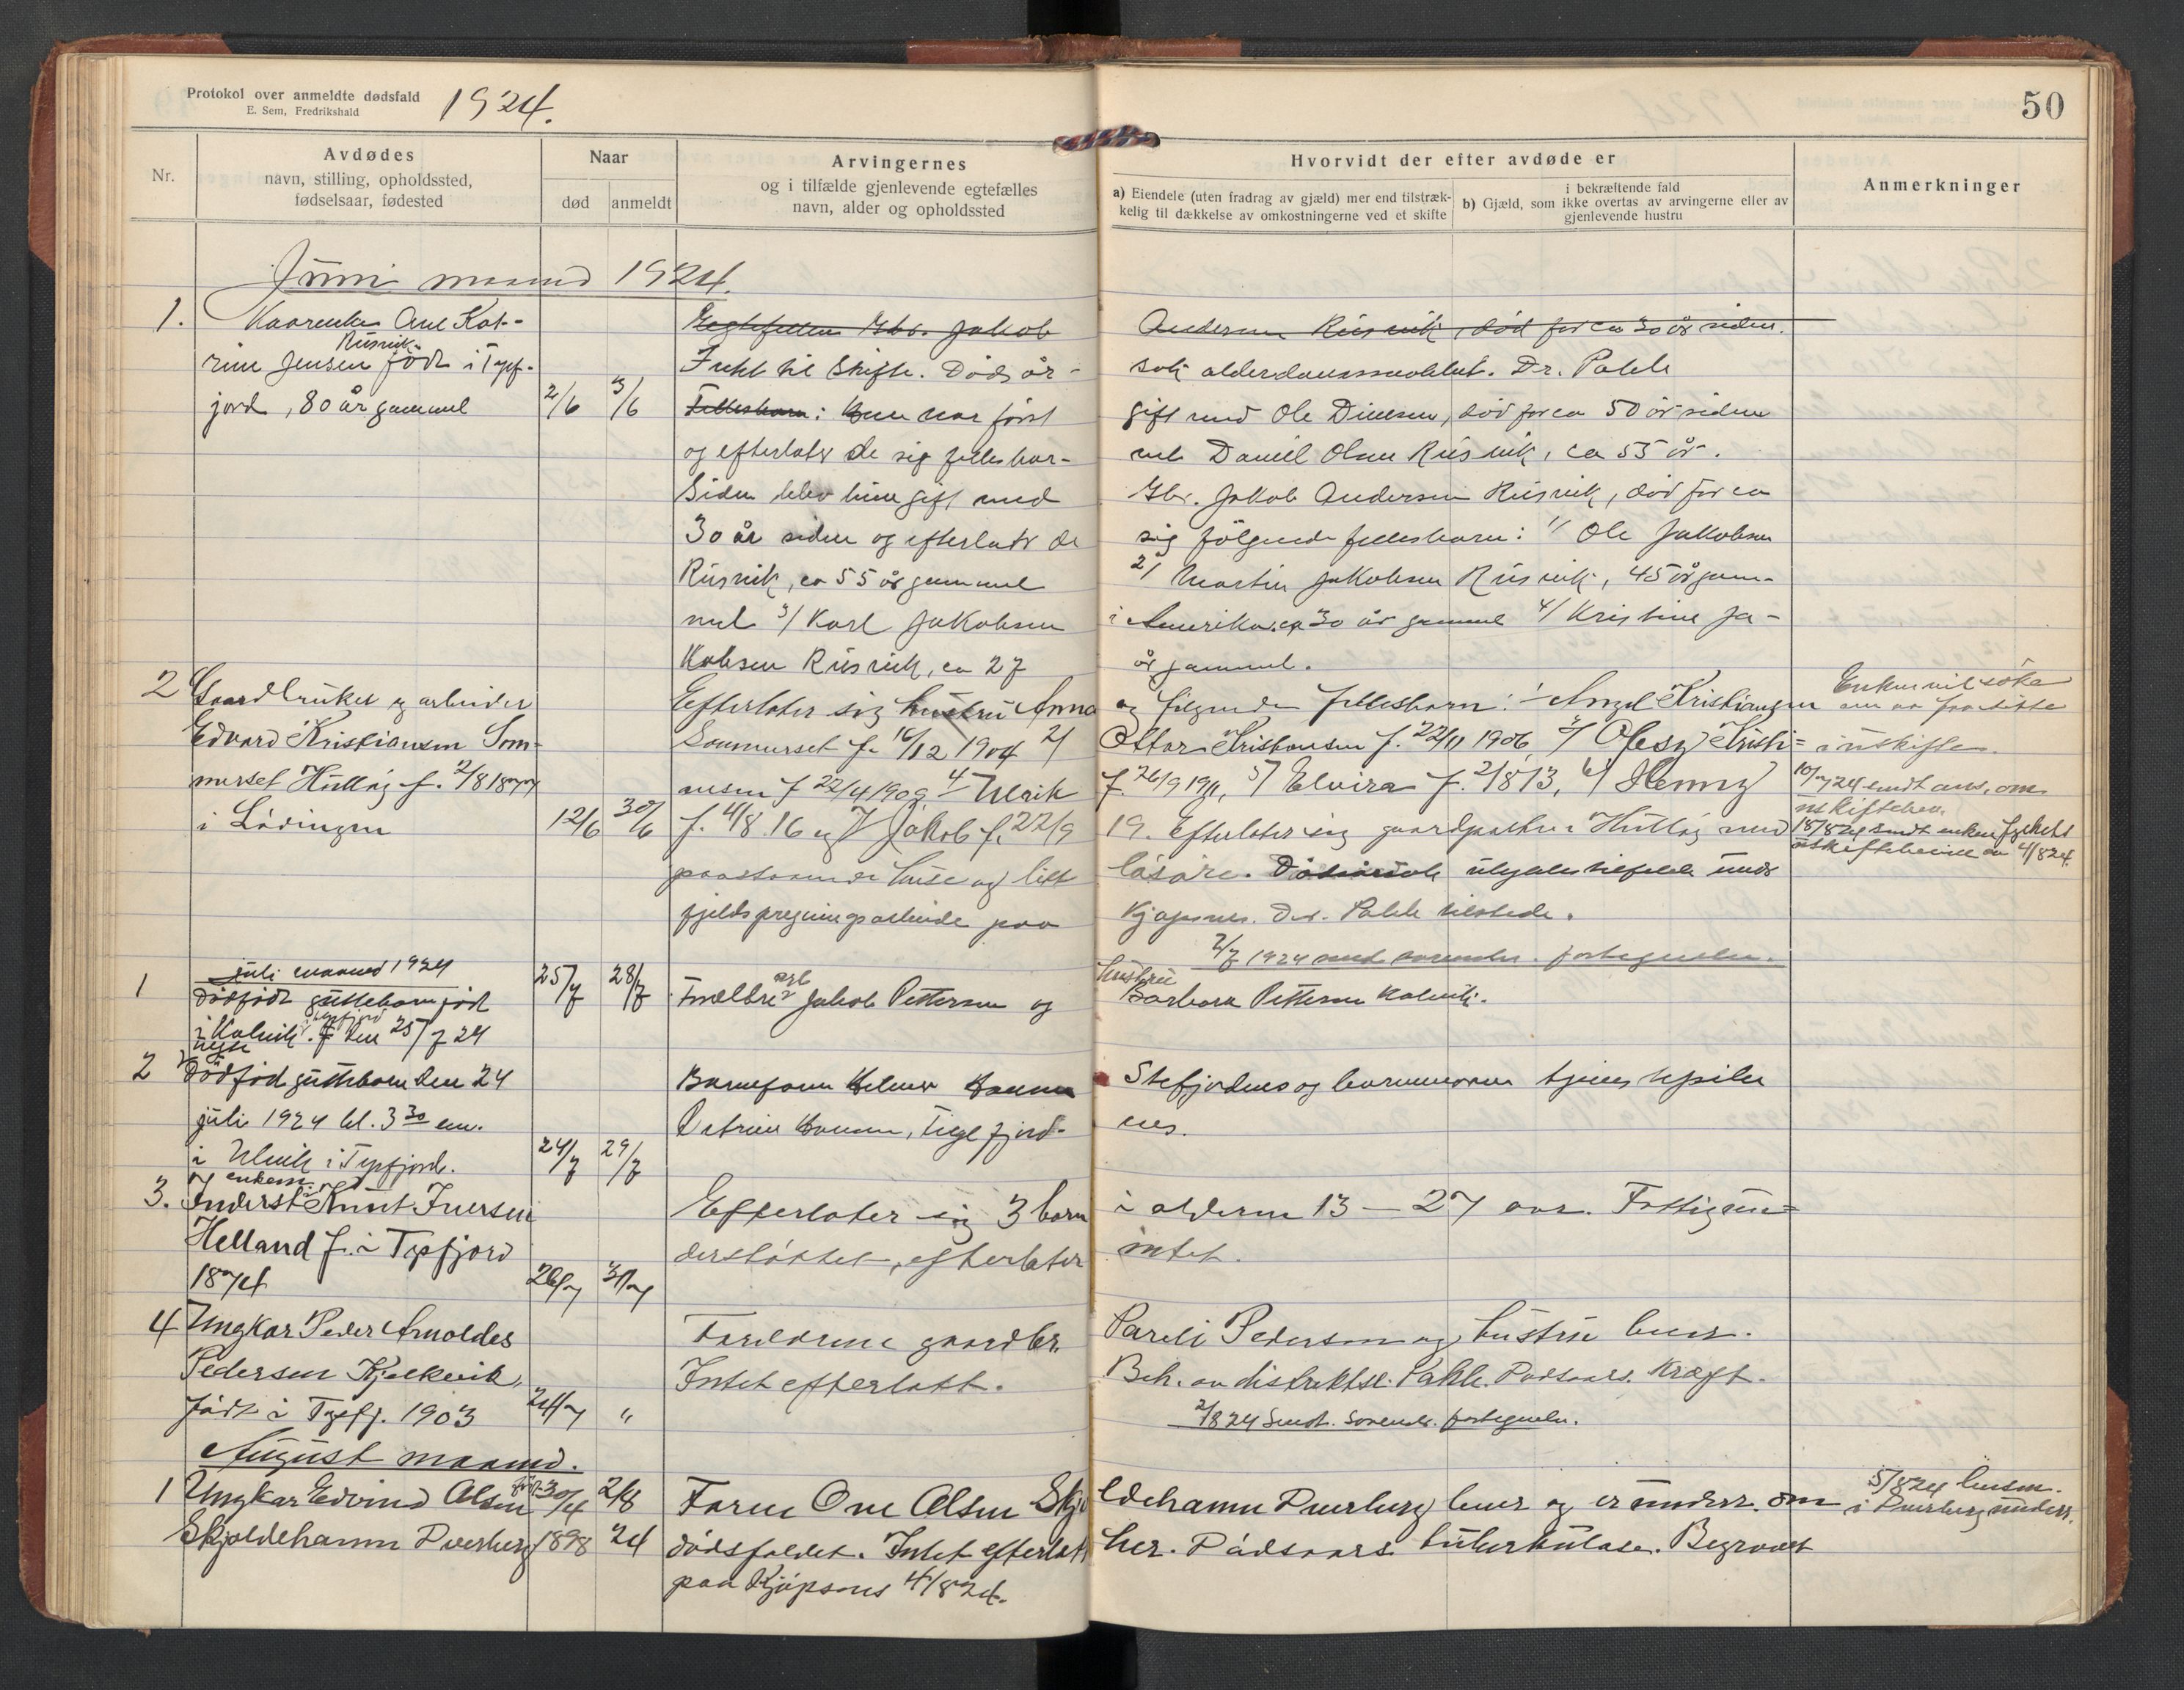 Protokol over anmeldte dødsfald
E. Sem, Fredrikshald
1924.
50
Nr.
Avdødes
navn, stilling, opholdssted,
fødselsaar, fødested
Naar
død
anmeldt
Arvingernes
og i tilfælde gjenlevende egtefælles
navn, alder og opholdssted
Hvorvidt der efter avdøde er
a) Eiendele (uten fradrag av gjæld) mer end tilstræk-
kelig til dækkelse av omkostningerne ved et skifte
i bekræftende fald
b) Gjæld, som ikke overtas av arvingerne eller av
gjenlevende hustru
Anmerkninger
Juni maaned 1924.
1. Kaarenke Ane Kat-
rine Jensen Rüsvik född i Tysf-
jord, 80 år gammel 2/6 3/6
Egtefellen Gbr. Jakob Andersen Rüsvik, död for ca 30 år siden.
Intet til Skifte. Dödsår- sak alderdomssvakhet. Dr. Pahle
Fellesbarn: Hun var först gift med Ole Dinesen, död for ca 50 år siden
og efterlater de sig fellesbar- net Daniel Olsen Rüsvik, ca 55 år.
Siden blev hun gift med Gbr. Jakob Andersen Rüsvik, död for ca
30 år siden og efterlater de sig fölgende fellesbarn: 1/ Ole Jakobsen
Rüsvik, ca 55 år gammel 2/ Martin Jakobsen Rüsvik, 45 år gam-
mel 3/ Karl Jakobsen i Amerika, ca 30 år gammel 4/ Kristine Ja-
kobsen Rüsvik, ca 27 år gammel.
2 Gaardbruker og arbeider
Edvard Kristiansen Som-
merset Hullöj f. 2/8 1877
i Lödingen 12/6 30/6
Efterlater sig hustru Anna og følgende fellesbarn: 1/ Angel Kristiansen
Sommerset f. 16/12 1904 2/ Ottar Kristiansen f. 22/11 1906 3/ Olesy Kristi=
ansen f 22/4 1909, 4/ Ulrik f. 26/9 1911, 5/ Elvira f. 2/8 13, 6/ Henny
f. 4/8 16 og 7/ Jakob f. 22/9 19. Efterlater sig gaardparten i Hullöj med
paastaaende huse og litt lösöre. ulykkestilfelde under
fjeldsprengningsarbeide paa Kjöpsnes. Dr. Pahle tilstede.
2/7 1924 sendt sorenskr. fortegnelsen.
Enken vil söke
om aa faa sitte
i uskifte.
10/7 24 sendt ans. om
uskiftebev.
18/8 24 sendt enken
uskiftebevill av 4/8 24
juli maaned 1924
1 Dödfödt guttebarn född
i Kalvik i Tysfjord. f den 25/7 24 25/7 28/7
Foreldre: arb Jakob Pettersen og hustru
Barbara Pettersen Kalvik.
2 Uegte
Dödfödt guttebarn den 24
juli 1924 kl. 3 30 em.
i Ulvik i Tysfjord. 24/7 29/7
Barnefaren Helmer Hansen Stefjordnes og barnemoren
Petrine Hansen, Tysfjord.
3. Inderst enkem. Knut Iversen
Helland f. i Tysfjord
1874 26/7 31/7
Efterlater sig 3 barn i alderen 13 – 27 aar. Fattigun=
derstöttet, efterlater intet.
4 Ungkar Peder Arnoldes
Pedersen Kjelkvik,
född i Tysfj. 1903 24/7 "
Foreldrene gaardbr. Pareli Pedersen og hustru
Intet efterlatt. Beh. av distriktsl. Pahle. Dødsaars. Kræft.
2/8 24 Sendt. Sorenskr. fortegnelse.
August maaned.
1 Ungkar Edvind Olsen född 30/4 2/8
Skjoldehamn Dverberg 1898 24
Faren One Olsen Skjoldehamn Dverberg lever og er underr. om
dödsfaldet. Intet efterlatt her. Dödsaars. tuberkulose. Begravet
paa Kjöpsnes 4/8 24.
5/8 24 lensm.
i Dverberg underr.